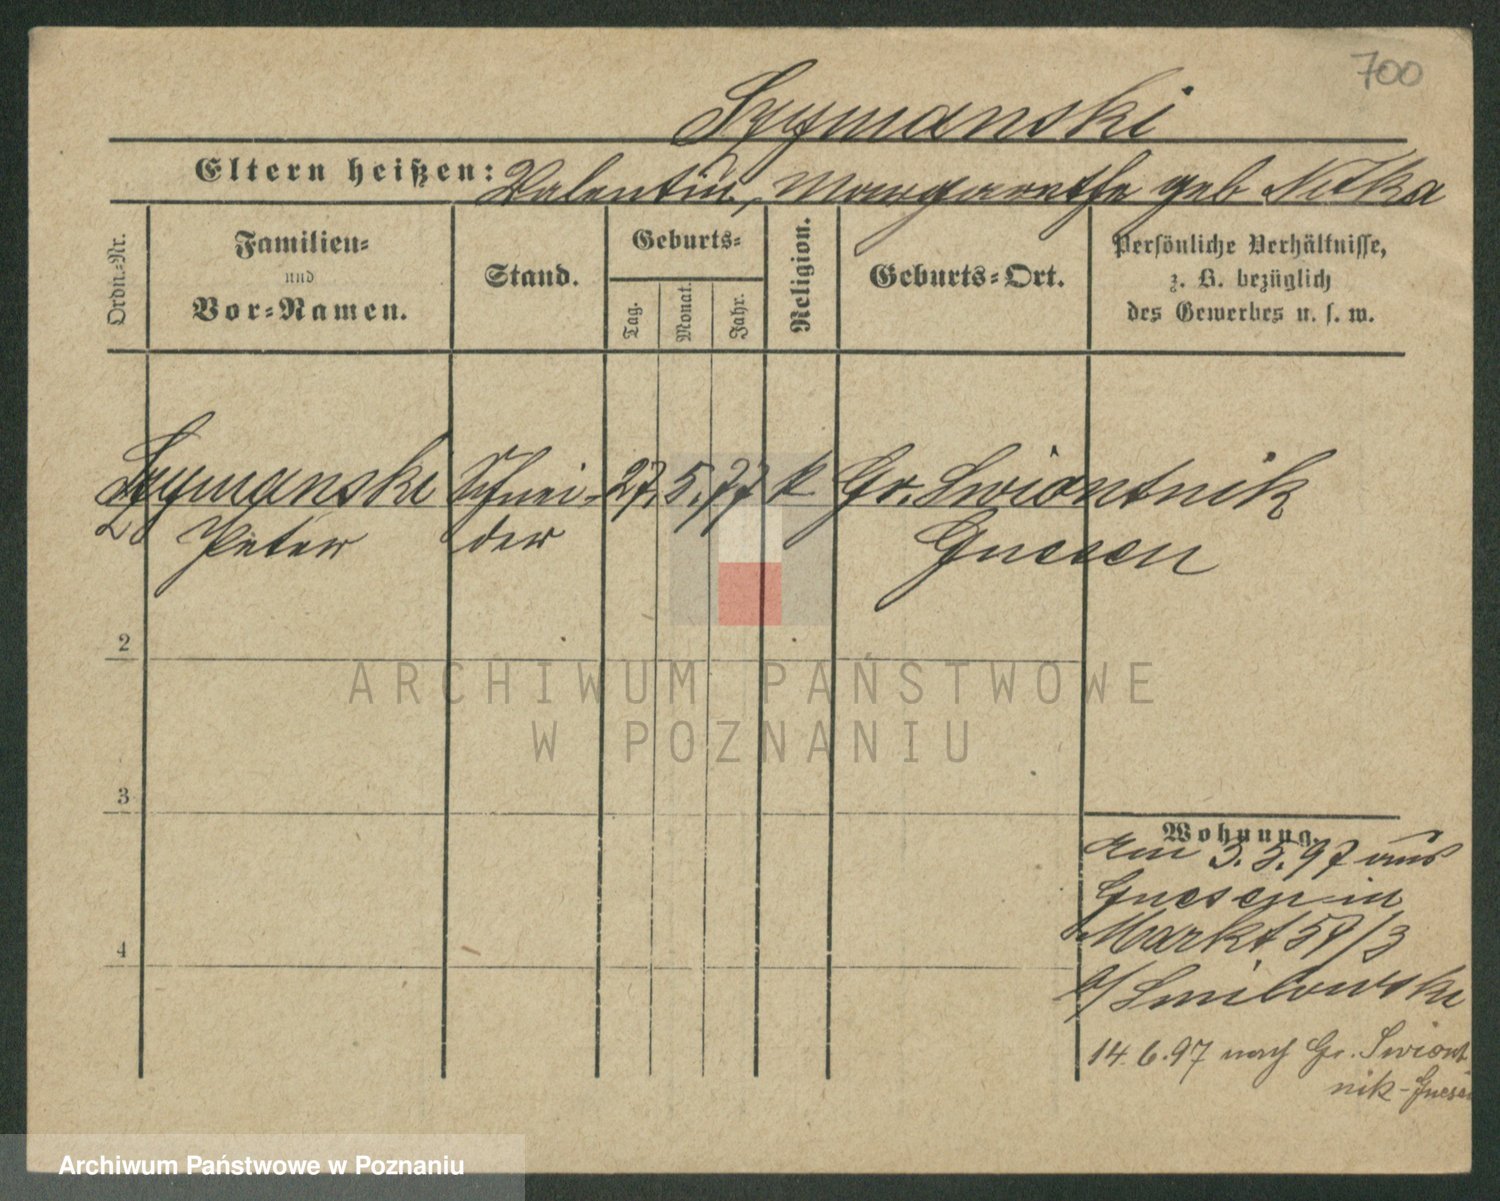 700
Szymanski
Eltern heißen: Valentin, Margarethe geb Nitka
Ordn.-Nr.
Familien-
und
Vor-Namen.
Stand.
Geburts-
Tag.
Monat.
Jahr.
Religion.
Geburts-Ort.
Persönliche Verhältnisse,
z. B. bezüglich
des Gewerbes u. s. w.
Szymanski Schnei- 27. 5. 77 k Gr. Swiontnik
Peter der Gnesen
2
3
4
ARCHIWUM PAŃSTWOWE
W POZNANIU
Wohnung.
Am 3. 5. 97 aus
Gnesen in
Markt 57/3
b/ Smilowski
14.6.97 nach Gr. Swiont
nik-Gnesen
Archiwum Państwowe w Poznaniu